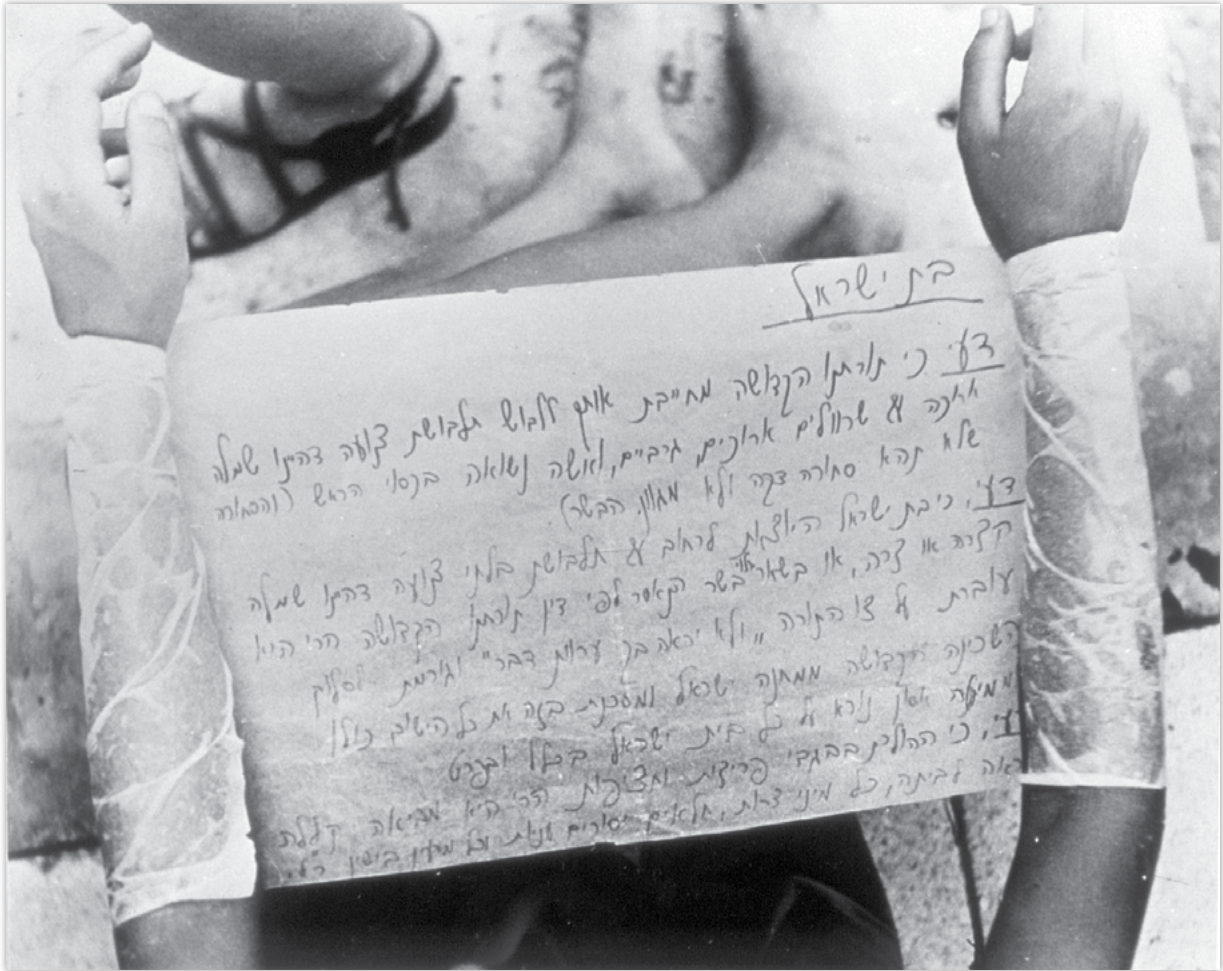 בת ישראל
דעי כי תורתנו הקדושה מחייבת אותך ללבוש תלבושת צנועה דהיינו שמלה
ארוכה עם שרוולים ארוכים, גרביים, ואשה נשואה בכסוי הראש (והסחורה
שלא תהא סחורה דקה ולא מגוון הבשר)
דעי, כי בת ישראל היוצאת לרחוב עם תלבושת בלתי צנועה דהינו שמלה
קצרה או צרה, או בשאר גלוי בשר האסור לפי דין תורתנו הקדושה הרי היא
עוברת על צו התורה "ולא יראה בך ערות דבר" וגורמת לסלוק
השכינה הקדושה ממחנה ישראל ומסכנת בזה את כל הישוב כולו
וממיטה אסון נורא על כל בית ישראל בכלל ובפרט
דעי, כי ההולכת בבגדי פריצות וחציפות הרי היא מביאה קללה
לביתה, כל מיני צרות, חלאים יסורים